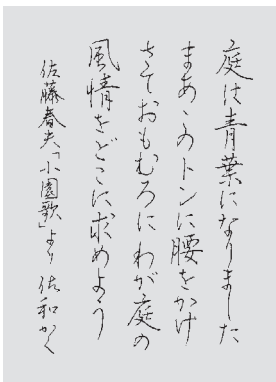 庭は青葉になりました
まあこのトンに腰をかけ
さておもむろにわが庭の
風情をどこに求めよう
佐藤春夫「小園歌」より 佐和かく